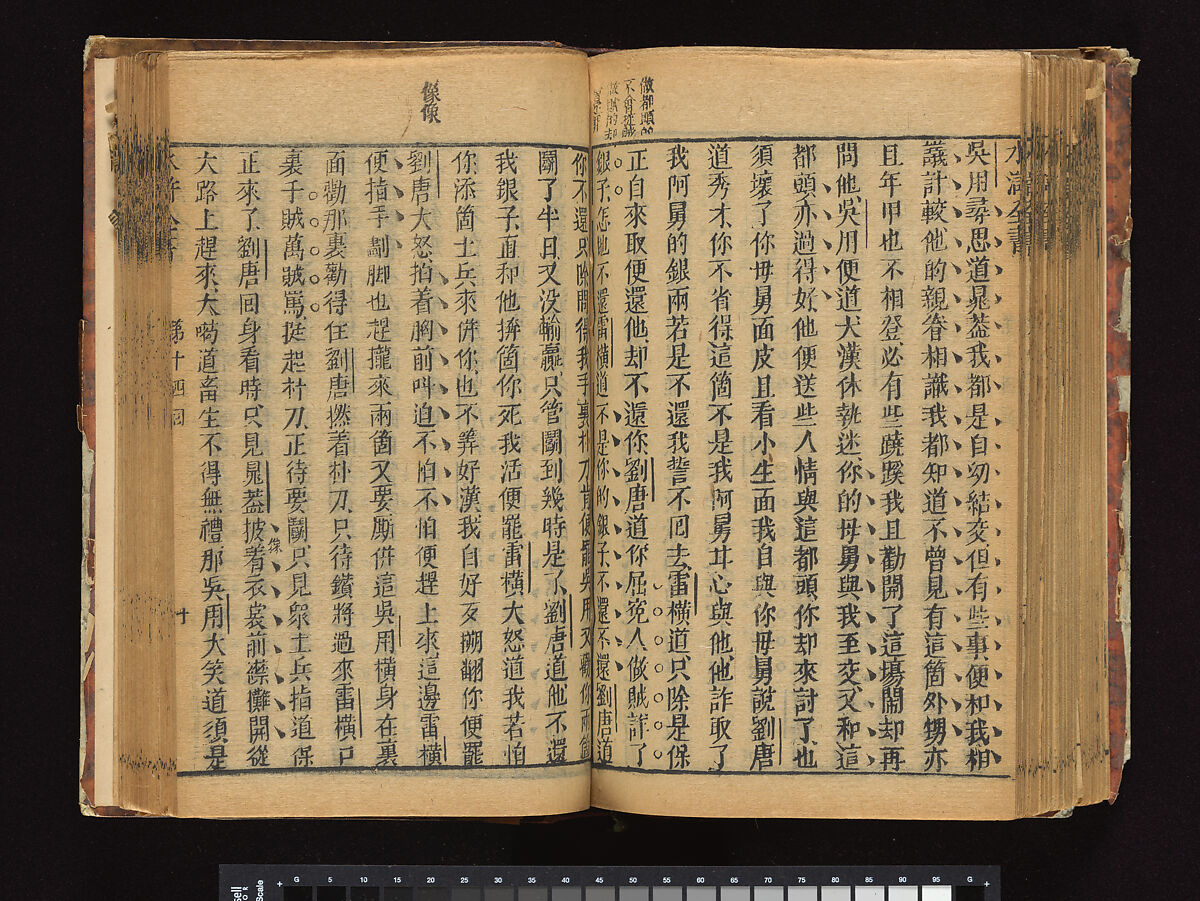 做都頭的
不會捉賊
做賊的却
水滸全書
吳用尋思道晁蓋我都是自幼結交但有些事便和我相
議計較他的親眷相識我都知道不曾見有這箇外甥亦
且年甲也不相登必有些蹺蹊我且勸開了這場鬧却再
問他吳用便道大漢休執迷你的母舅與我至交又和這
都頭亦過得好他便送些人情與這都頭你却來討了也
須壞了你母舅面皮且看小生面我自與你母舅說劉唐
道秀才你不省得這箇不是我阿舅甘心與他他詐取了
我阿舅的銀兩若是不還我誓不囘去雷橫道只除是保
正自來取便還他却不還你劉唐道你屈寃人做賊詐了
銀子怎地不還雷橫道不是你的銀子不還不還劉唐道
你不還只除問得我手裏朴刀肯便罷吳用又勸你兩箇
鬭了半日又没輸贏只管鬭到幾時是了劉唐道他不還
我銀子直和他拚箇你死我活便罷雷橫大怒道我若怕
你添箇土兵來併你也不筭好漢我自好歹搠翻你便罷
劉唐大怒拍着胸前叫道不怕不怕便趕上來這邊雷橫
便指手劃脚也趕攏來兩箇又要厮併這吳用橫身在裏
面勸那裏勸得住劉唐撚着朴刀只待鑽將過來雷橫口
裏千賊萬賊罵挺起朴刀正待要鬭只見衆土兵指道保
正來了劉唐囘身看時只見晁蓋披着衣裳前襟攤開從
大路上趕來大喝道畜生不得無禮那吳用大笑道須是
像像
傑
水滸全書
第十四囘
十